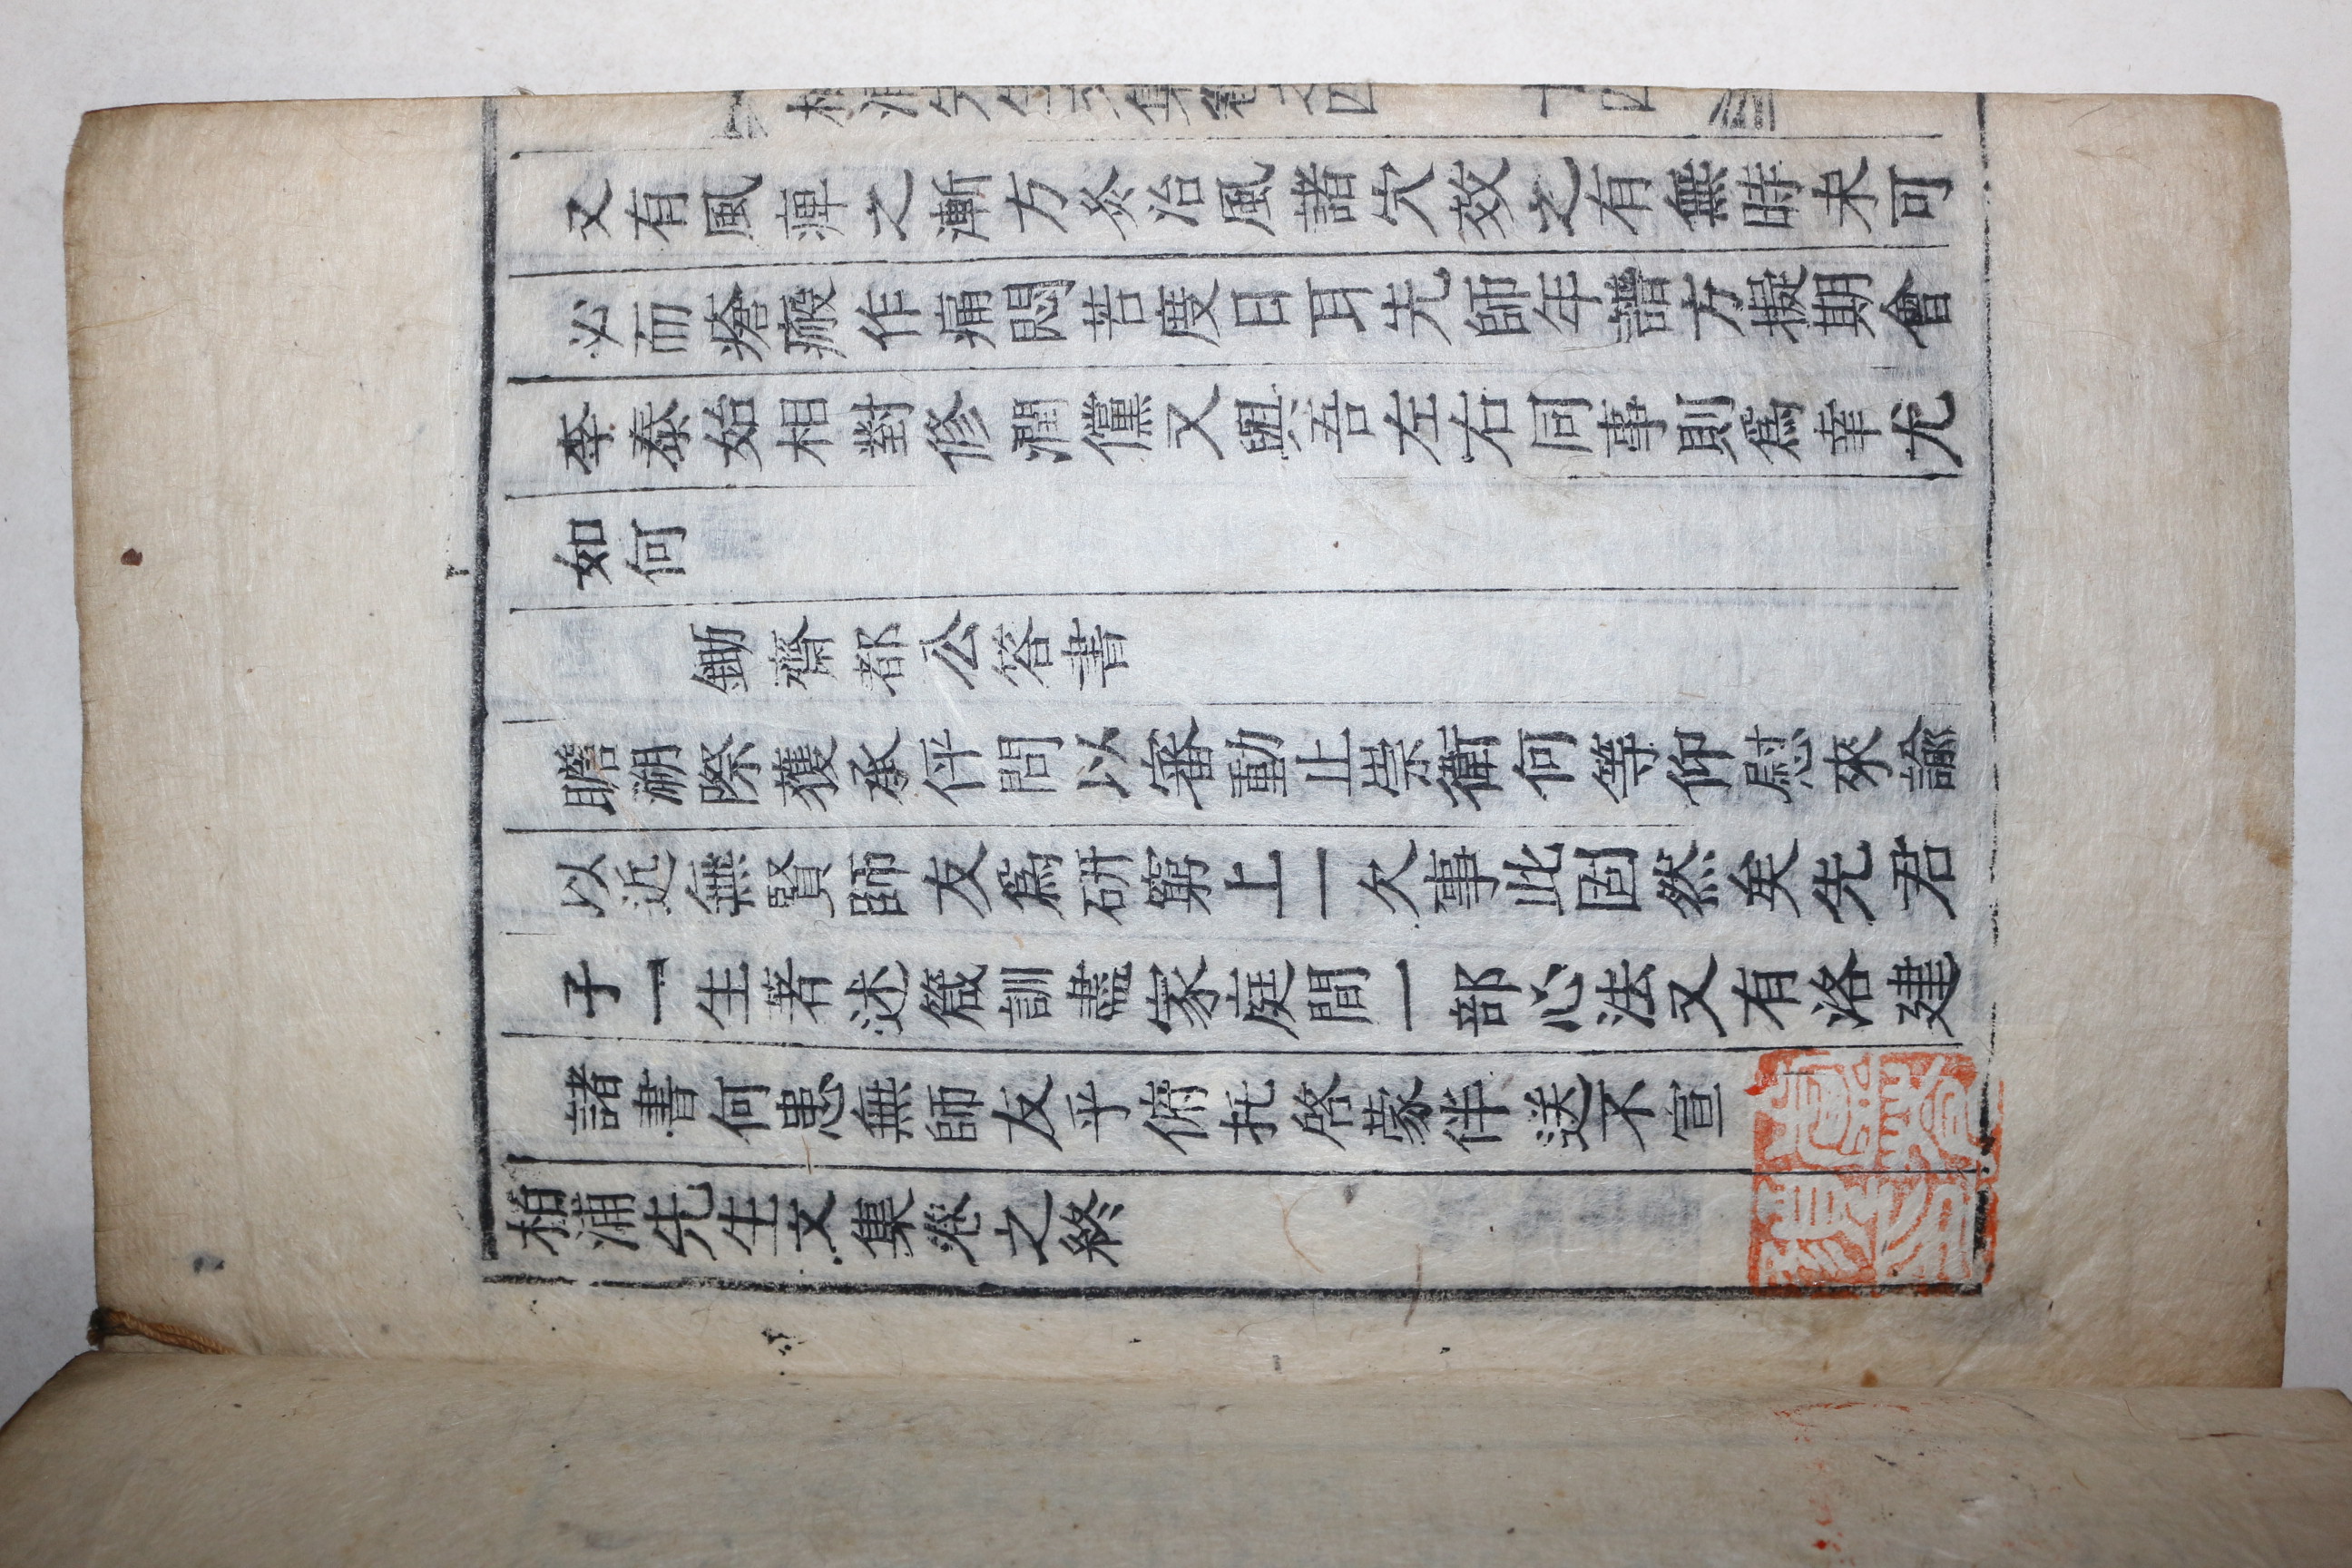 又有風痺之漸方灸治風諸穴效之有無時未可
必而瘡瘢作痛悶苦度日耳先師年譜方擬期會
李泰始相對修潤儻又與吾左右同事則爲幸尤
如何
鋤齋都公答書
瞻溯際獲承伻問以審動止崇衛何等仰慰來諭
以近無賢師友爲硏窮上一欠事此固然矣先君
子一生著述箴訓盡家庭間一部心法又有洛建
諸書何患無師友乎俯托啓蒙伴送不宣
柏浦先生文集卷之終